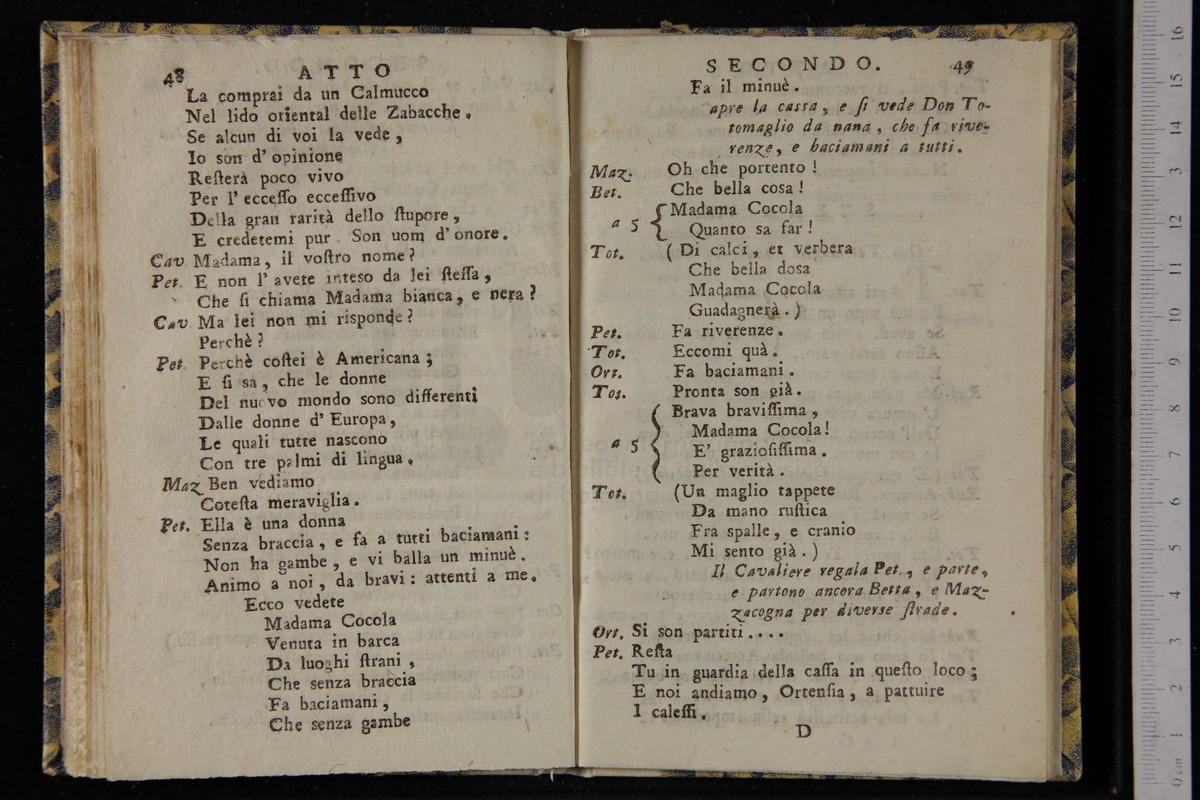 48 ATTO
La comprai da un Calmucco
Nel lido oriental delle Zabacche.
Se alcun di voi la vede,
Io son d' opinione
Reſterà poco vivo
Per l' ecceſſo ecceſſivo
Della gran rarità dello ſtupore,
E credetemi pur. Son uom d' onore.
Cav Madama, il voſtro nome?
Pet. E non l' avete inteso da lei ſteſſa,
Che ſi chiama Madama bianca, e nera?
Cav Ma lei non mi risponde?
Perchè?
Pet. Perchè coſtei è Americana;
E ſi sa, che le donne
Del nuovo mondo sono differenti
Dalle donne d' Europa,
Le quali tutte nascono
Con tre palmi di lingua.
Maz Ben vediamo
Coteſta meraviglia.
Pet. Ella è una donna
Senza braccia, e fa a tutti baciamani:
Non ha gambe, e vi balla un minuè.
Animo a noi, da bravi: attenti a me.
Ecco vedete
Madama Cocola
Venuta in barca
Da luoghi ſtrani,
Che senza braccia
Fa baciamani,
Che senza gambe
SECONDO. 49
Fa il minuè.
apre la cassa, e ſi vede Don To-
tomaglio da nana, che fa rive-
renze, e baciamani a tutti.
Maz. Oh che portento!
Bet. Che bella cosa!
a 5 { Madama Cocola
Quanto sa far!
Tot. (Di calci, et verbera
Che bella dosa
Madama Cocola
Guadagnerà.)
Pet. Fa riverenze.
Tot. Eccomi quà.
Ort. Fa baciamani.
Tot. Pronta son già.
a 5 { Brava braviſſima,
Madama Cocola!
E' grazioſiſſima.
Per verità.
Tot. (Un maglio tappete
Da mano ruſtica
Fra spalle, e cranio
Mi sento già.)
Il Cavaliere regala Pet., e parte,
e partono ancora Betta, e Maz-
zacogna per diverse ſtrade.
Ort. Si son partiti....
Pet. Reſta
Tu in guardia della caſſa in queſto loco;
E noi andiamo, Ortenſia, a pattuire
I caleſſi.
D
16
15
13
12
11
10
9
8
7
6
5
4
3
2
1
0 cm